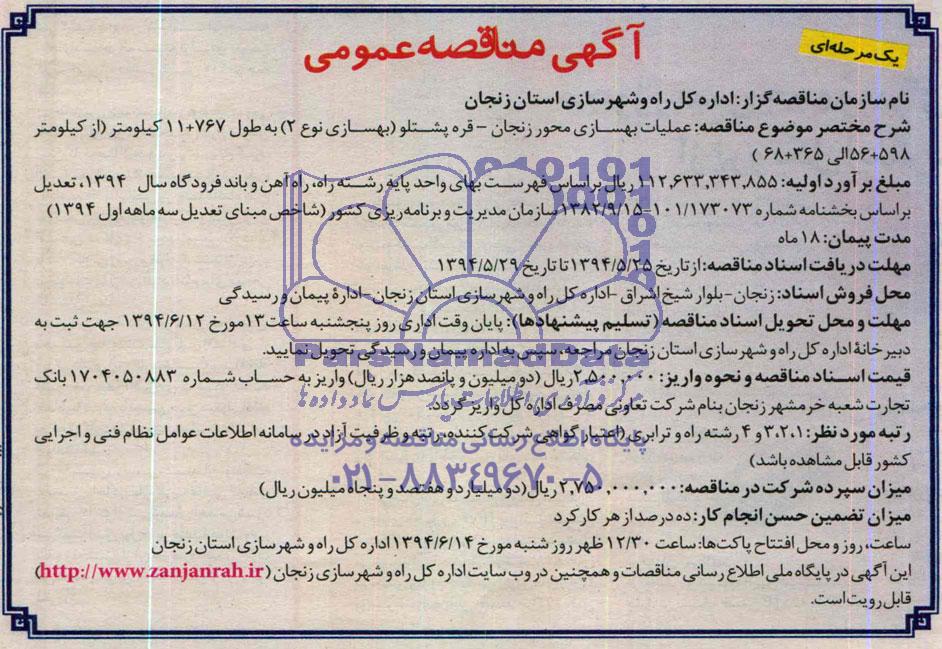 یک مرحله‌ای
آگهی مناقصه عمومی
نام سازمان مناقصه گزار: اداره کل راه و شهرسازی استان زنجان
شرح مختصر موضوع مناقصه: عملیات بهسازی محور زنجان – قره پشتلو (بهسازی نوع ۲) به طول ۷۶۷+۱۱ کیلومتر (از کیلومتر
۵۹۸+۵۶ الی ۳۶۵+۶۸ )
مبلغ برآورد اولیه: ۱۱۲,۶۳۳,۳۴۳,۸۵۵ ریال براساس فهرست بهای واحد پایه رشته راه، راه آهن و باند فرودگاه سال ۱۳۹۴، تعدیل
براساس بخشنامه شماره ۱۰۱/۱۷۳۰۷۳-۱۳۸۲/۹/۱۵ سازمان مدیریت و برنامه ریزی کشور (شاخص مبنای تعدیل سه ماهه اول ۱۳۹۴)
مدت پیمان: ۱۸ ماه
مهلت دریافت اسناد مناقصه: از تاریخ ۱۳۹۴/۵/۲۵ تا تاریخ ۱۳۹۴/۵/۲۹
محل فروش اسناد: زنجان-بلوار شیخ اشراق -اداره کل راه و شهرسازی استان زنجان-ادارۀ پیمان و رسیدگی
مهلت و محل تحویل اسناد مناقصه (تسلیم پیشنهادها): پایان وقت اداری روز پنجشنبه ساعت ۱۳ مورخ ۱۳۹۴/۶/۱۲ جهت ثبت به
دبیرخانۀ اداره کل راه و شهرسازی استان زنجان مراجعه، سپس به اداره پیمان و رسیدگی تحویل نمایید.
قیمت اسناد مناقصه و نحوه واریز: ۲,۵۰۰,۰۰۰ ریال (دو میلیون و پانصد هزار ریال) واریز به حساب شماره ۱۷۰۴۰۵۰۸۸۳ بانک
تجارت شعبه خرمشهر زنجان بنام شرکت تعاونی مصرف اداره کل واریز گردد.
رتبه مورد نظر: ۳،۲،۱ و ۴ رشته راه و ترابری (اعتبار گواهی شرکت کننده، رتبه و ظرفیت آزاد در سامانه اطلاعات عوامل نظام فنی و اجرایی
کشور قابل مشاهده باشد)
میزان سپرده شرکت در مناقصه: ۲,۷۵۰,۰۰۰,۰۰۰ ریال (دو میلیارد و هفتصد و پنجاه میلیون ریال)
میزان تضمین حسن انجام کار: ده درصد از هر کارکرد
ساعت، روز و محل افتتاح پاکت‌ها: ساعت ۱۲/۳۰ ظهر روز شنبه مورخ ۱۳۹۴/۶/۱۴ اداره کل راه و شهرسازی استان زنجان
این آگهی در پایگاه ملی اطلاع رسانی مناقصات و همچنین در وب سایت اداره کل راه و شهرسازی زنجان (http://www.zanjanrah.ir)
قابل رویت است.
ParsNamadData
مرکز فرآوری اطلاعات پارس نماد داده‌ها
پایگاه اطلاع رسانی مناقصه و مزایده
۰۲۱-۸۸۳۴۹۶۷۰-۵